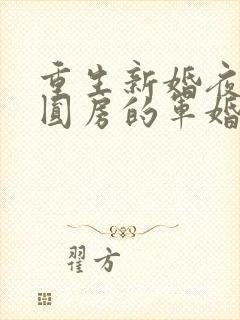 重生新婚夜
圆房的军婚
翟方